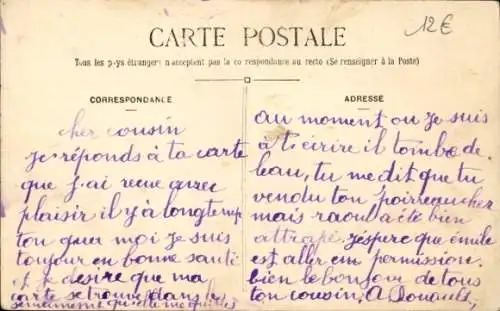 12€
CARTE POSTALE
Tous les pays étrangers n'acceptent pas la correspondance au recto (Se renseigner à la Poste)
CORRESPONDANCE
cher cousin
je réponds à ta carte
que j'ai recue avec
plaisir il y a longtemp
ton quer moi je suis
toujour en bonne santé
et je desire que ma
carte se trouve dans le
ADRESSE
au moment ou je suis
à t'écrire il tombe de
leau, tu me dit que tu
vendu ton poirreau cher
mais raoul a été bien
attrapé. j'espere que émile
est aller em permission.
bien le bonjour de tous
ton cousin, A